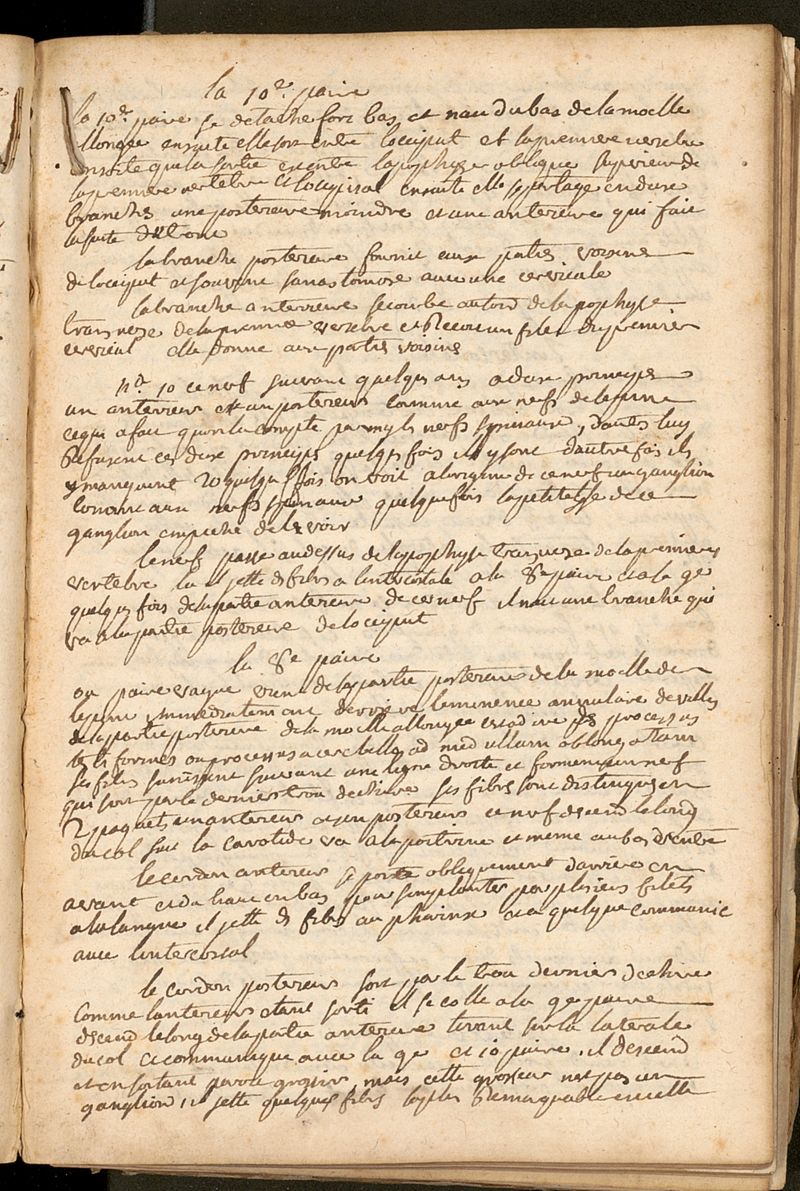 la 10e paire
la 10e paire se detache fort bas et nait du bas de la moelle
allongée ensuite elle sort entre l'occiput et la premiere vertebre
ensorte que sa sortie est entre lapophyse oblique superieure de
la premiere vertebre et loccipital ensuite elle se partage en deux
branches une posterieure moindre et une anterieure qui fait
la suite du tronc
la branche posterieure fournit aux parties voisines
de locciput et souvent sanastomose avec une cervicale
la branche anterieure se courbe autour de lapophyse
transverse de la premiere vertebre et recoit un filet du premier
cervical elle donne aux parties voisines
10 ce nerf suivant quelques uns a deux principes
un anterieur et un posterieur comme aux nerfs de lepine
ce qui a fait quon la compté parmy les nerfs spinaux, dautres luy
refusent ces deux principes quelques fois ils y sont dautre fois ils
y manquent 2o quelques fois on voit a lorigine de ce nerf un ganglion
comme aux nerfs spinaux quelquefois la petitesse de ce
ganglion empeche de le voir
le nerf passe au dessus de lapophyse transverse de la premiere
vertebre la il jette des filets a lintercostale a la 8e paire et a la 9e
quelques fois de la partie anterieure de ce nerf il nait une branche qui
va a la partie posterieure de locciput
la 8e paire
ou paire vague vient de la partie posterieure de la moelle de
lepine immediatement derriere leminence annulaire de villis
de la partie posterieure de la moelle allongée est a dire des processus
ou processus a cerebello ad medullam oblongatam
ses filets sunissent suivant une ligne droite et forment un nerf
qui sort par le dernier trou dechiré ses filets sont distingués en
2 paquets un anterieur et un posterieur ce nerf descend le long
du col sur la carotide va a la poitrine et meme au bas ventre
le cordon anterieur se porte obliquement d'arriere en
avant et du haut en bas pour simplanter par plusieurs filets
a la langue il jette des filets au pharinx et a quelque communic
avec lintercostal
le cordon posterieur sort par le trou dernier dechiré
comme lanterieur etant sorti il se colle a la 9e paire
descend le long de la partie anterieure tirant sur la laterale
du col et communique avec la 9e et 10 paire, il descend
et en sortant paroit grossir, mais cette grosseur nest pas un
ganglion il jette quelques filets le plus remarquable est celle